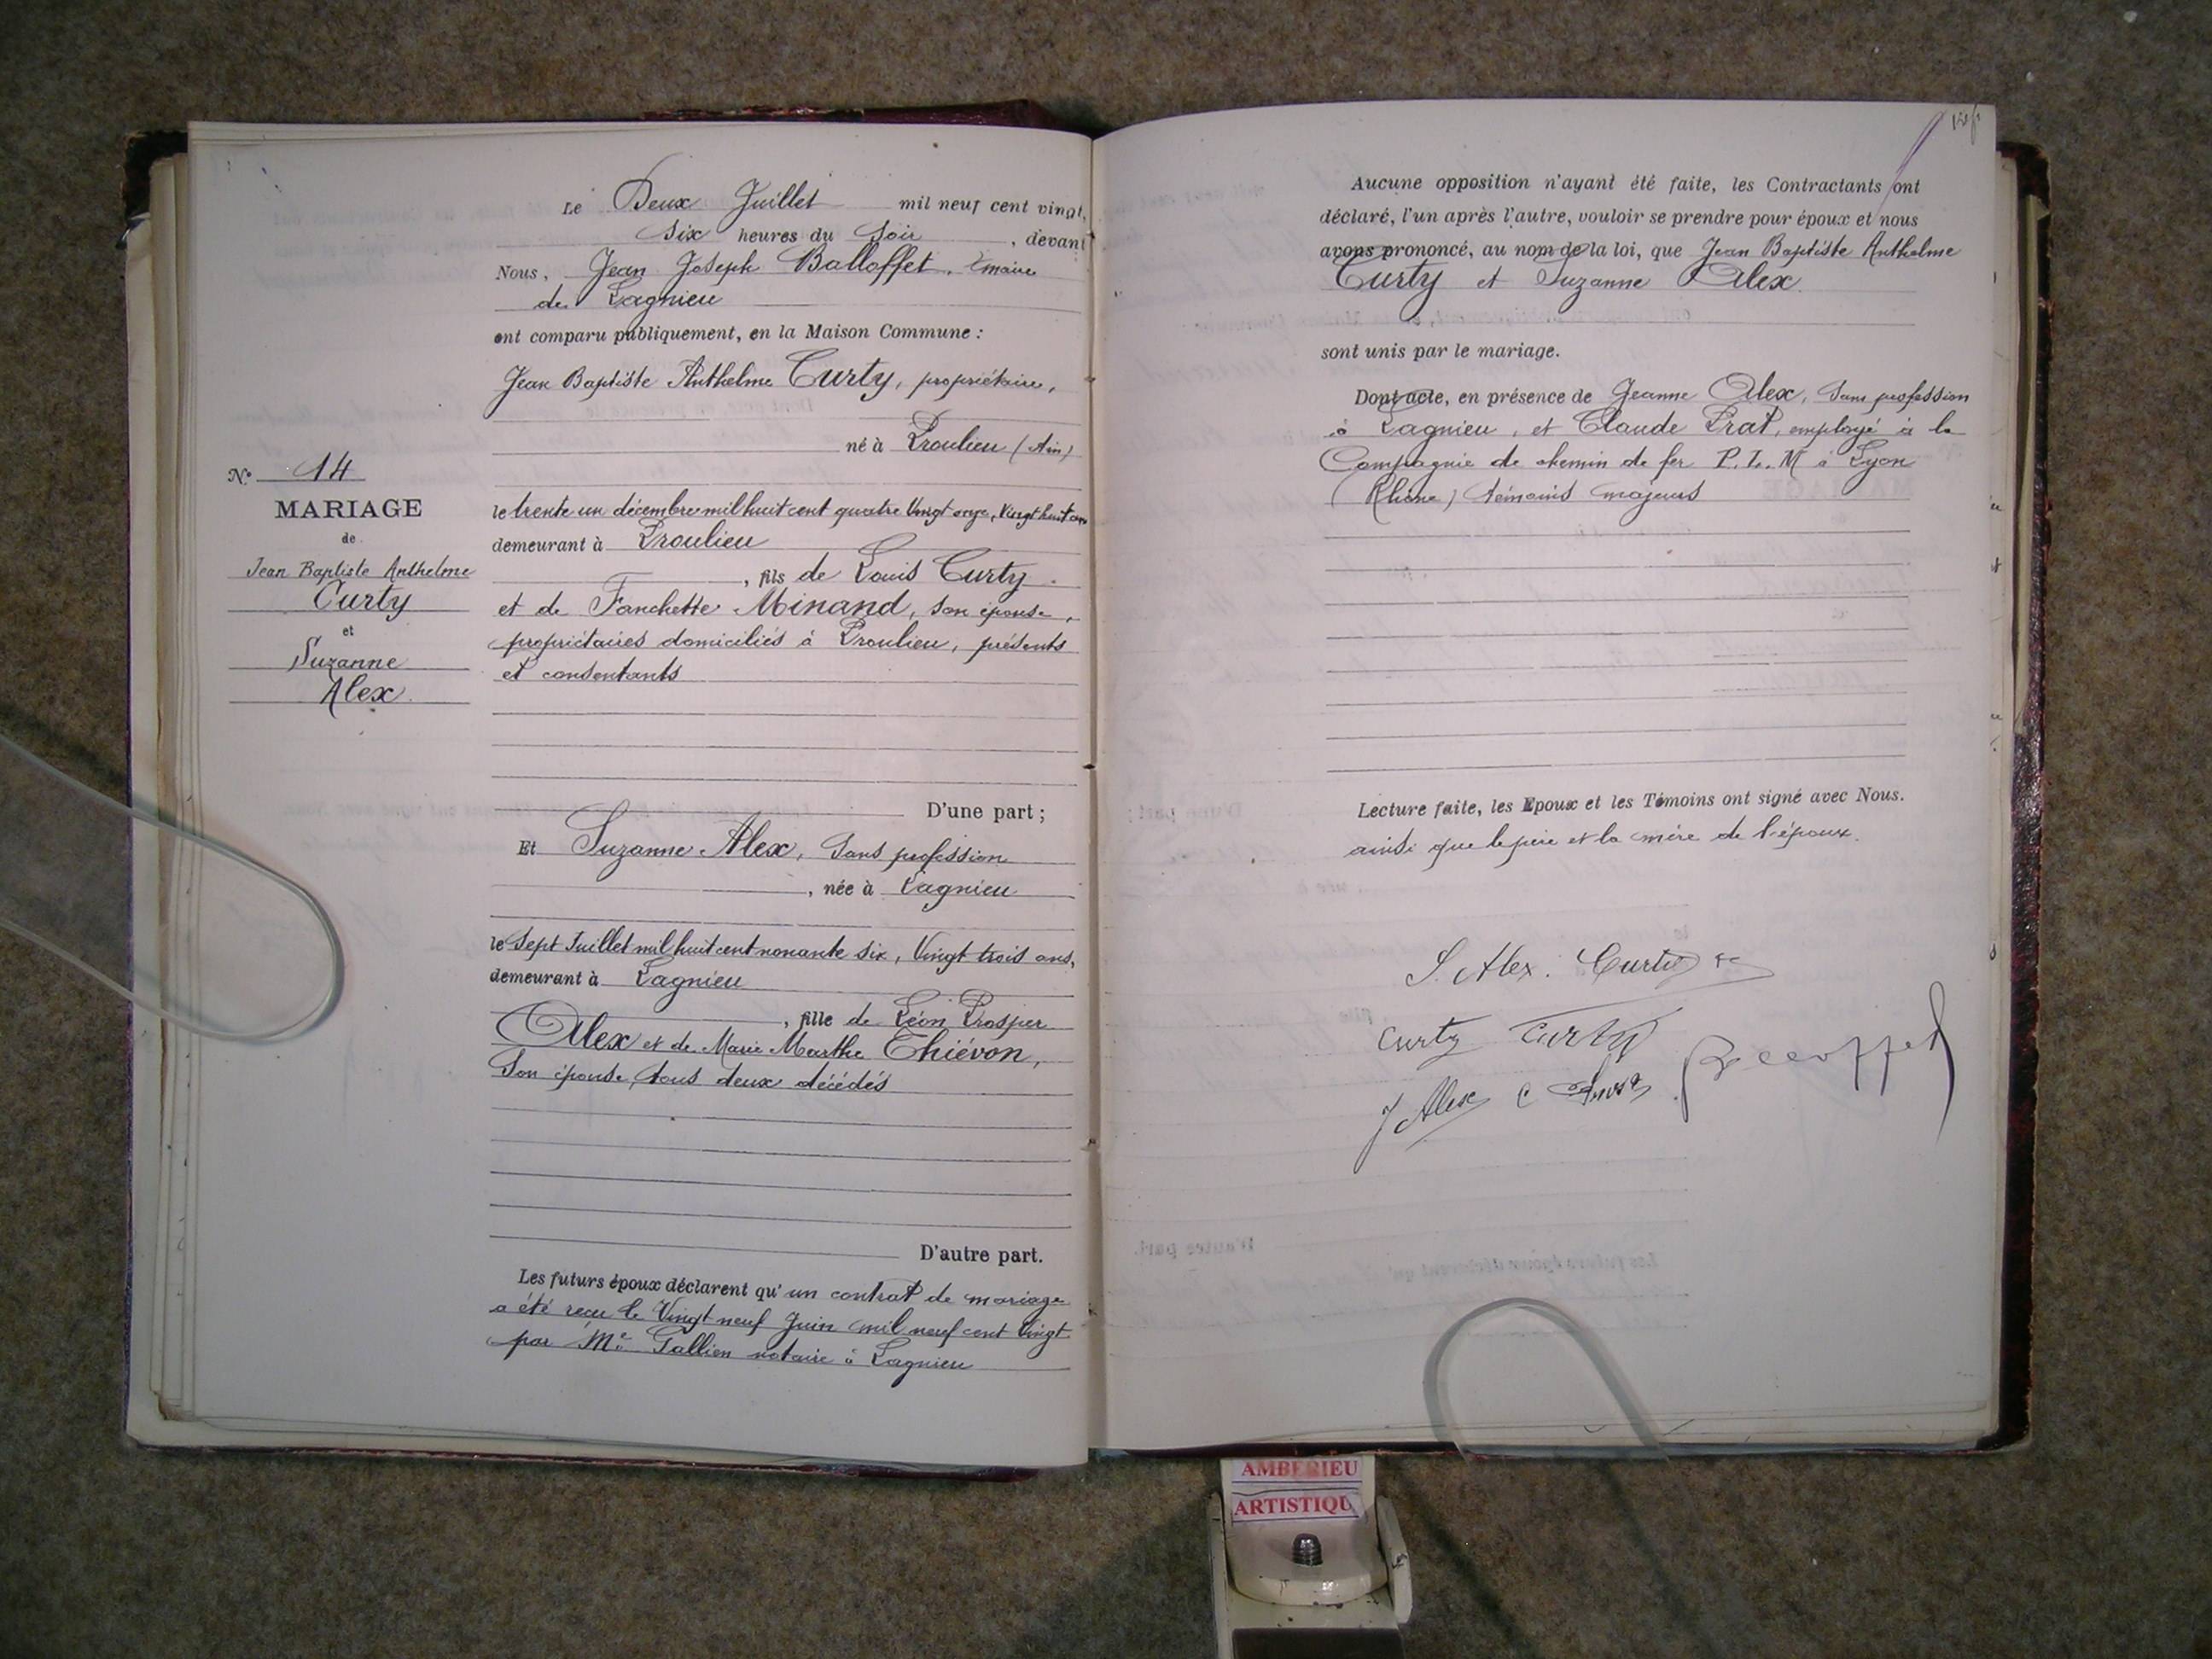 Le Deux Juillet mil neuf cent vingt,
six heures du Soir, devant
Nous, Jean Joseph Balloffet, maire
de Lagnieu
ont comparu publiquement, en la Maison Commune :
Jean Baptiste Anthelme Curty, propriétaire,
né à Proulieu (Ain)
le trente un décembre mil huit cent quatre Vingt onze, Vingt huit ans
demeurant à Proulieu
, fils de Louis Curty
et de Fanchette Minand, son épouse,
propriétaires domiciliés à Proulieu, présents
et consentants
D'une part ;
Et Suzanne Alex, Sans profession
, née à Lagnieu
le Sept Juillet mil huit cent nonante six, Vingt trois ans,
demeurant à Lagnieu
, fille de Léon Prosper
Alex et de Marie Marthe Thiévon,
Son épouse, tous deux décédés
D'autre part.
Les futurs époux déclarent qu'un contrat de mariage
a été reçu le Vingt neuf Juin mil neuf cent Vingt
par Me Gallien notaire à Lagnieu
No 14
MARIAGE
de
Jean Baptiste Anthelme
Curty
et
Suzanne
Alex
Aucune opposition n'ayant été faite, les Contractants ont
déclaré, l'un après l'autre, vouloir se prendre pour époux et nous
avons prononcé, au nom de la loi, que Jean Baptiste Anthelme
Curty et Suzanne Alex
sont unis par le mariage.
Dont acte, en présence de Jeanne Alex, Sans profession
à Lagnieu, et Claude Prat, employé à la
Compagnie de chemin de fer P. L. M à Lyon
(Rhône) témoins majeurs
Lecture faite, les Epoux et les Témoins ont signé avec Nous.
ainsi que le père et la mère de l'époux.
S. Alex. Curty
Curty Curty
J Alex C Balloffet
AMBERIEU
ARTISTIQU